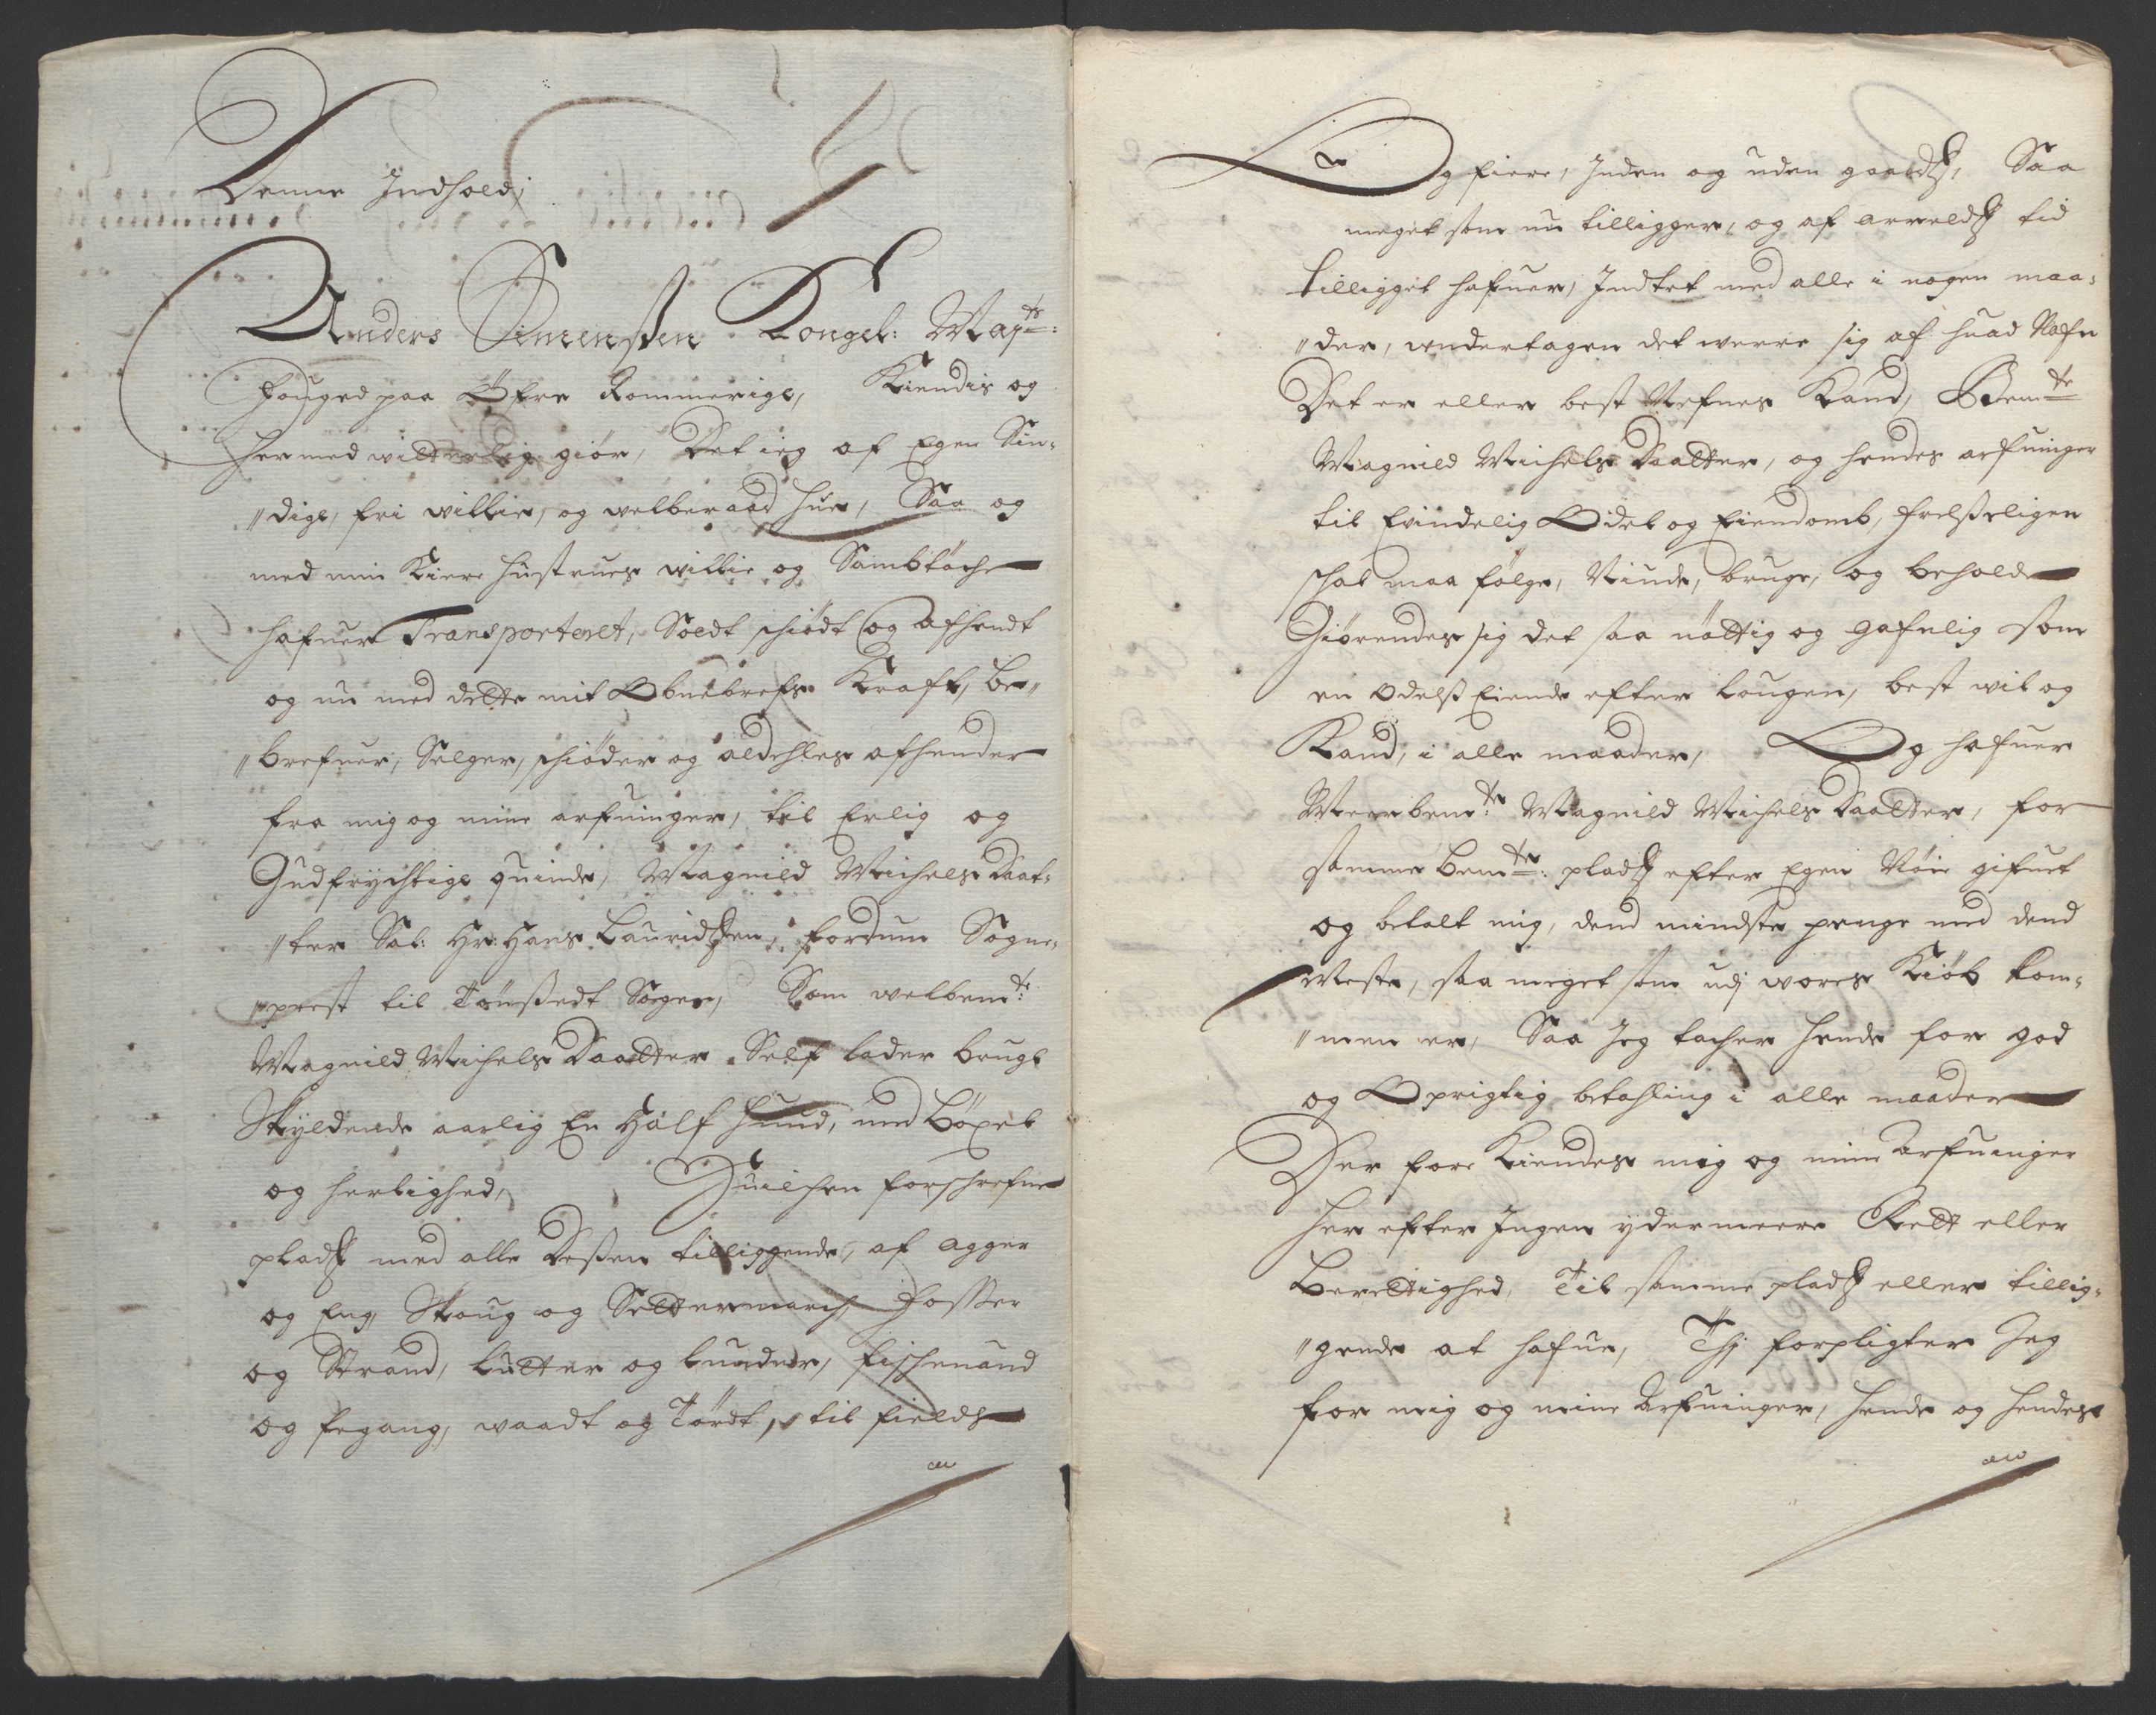 Denne Indhold;
Anders Simenßen Kongel: Maj:ts:
Fouged paa Øfre Rommerige, Kiendis og
hermed witterlig giør, Det ieg af Egen Sin-
"dige, fri willie, og welberaad hue, Saa og
med min Kiere hustrues willie og Sambtøche
hafuer Transporteret, Soldt schiødt og afhendt
og nu med dette mit Obnebrefs Krafft, be"
"brefuer, Selger, schiøder og aldehles afhender
fra mig og mine arfuinger, til Erlig og
Gudfrychtige quinde, Magnild Michels Daat-
"ter Sal: Hr: Hans Lauridßen, fordum Sogne-
"prest til Tønßedt Sogen, Som welbemte:
Magnild Michels Daatter Self lader bruge
Skyldende aarlig En Half hud, med bøxel
og herlighed, Huilchen forschrefne
pladtz med alle Desßen tilliggende, af agger
og Eng, Skoug og Settermarch, Fosßer
og Strand, lutter og lunder, fischevand
og fegang, waadt og Tørdt, til fields
Og fiere, Inden og uden gaardtz, Saa
meget som nu tilligger, og af arrildtz tid
tilligget hafuer, Indtet med alle i nogen maa-
"der, undertagen det werre sig af huad Nafn
Det er eller best Nefnes Kand, Bemte
Magnild Michels Daatter, og hendes arfuinger
til Evindelig Odel og Eiendomb, frelßeligen
schal maa følge, Niude, bruge, og beholde
Giørendes sig det saa nøttig og gafnlig som
en Odelß Eiende efter lougen, best wil og
Kand, i alle maader, Og hafuer
Meerbemte: Magnild Michels Daatter, for
samme bemte: pladtz efter Egen Nøie gifuet
og betalt mig, dend mindste penge med dend
Meste, saa meget som udj wores Kiøb kom-
"men er, Saa Jeg tacher hende for god
og Oprigtig betahling i alle maader
Der fore Kiendes mig og mine Arfuinger
her efter Ingen ydermeere Rett eller
Berettighed, Til samme pladtz eller tillig-
"gende at hafue, Thj forpligter Jeg
for mig og mine Arfuinger, hende og hendes